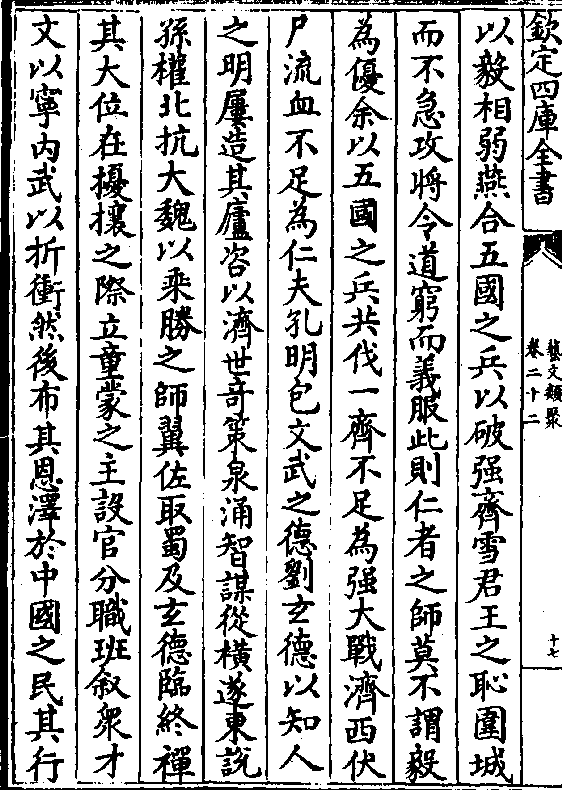 欽定四庫全書
藝文類聚
卷二十二
十七
以毅相弱燕合五國之兵以破强齊雪君王之恥圍城
而不急攻將令道窮而義服此則仁者之師莫不謂毅
為優余以五國之兵共伐一齊不足為强大戰濟西伏
尸流血不足為仁夫孔明包文武之德劉玄德以知人
之明屢造其廬咨以濟世奇策泉涌智謀從橫遂東說
孫權北抗大魏以乘勝之師翼佐取蜀及玄德臨終禪
其大位在擾攘之際立童蒙之主設官分職班叙衆才
文以寧内武以折衝然後布其恩澤於中國之民其行